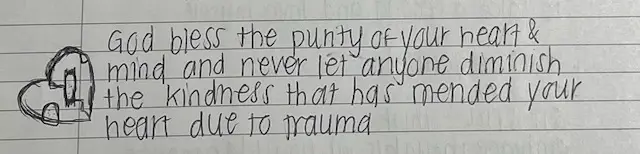 God bless the purity of your heart &
mind and never let anyone diminish
the kindness that has mended your
heart due to trauma